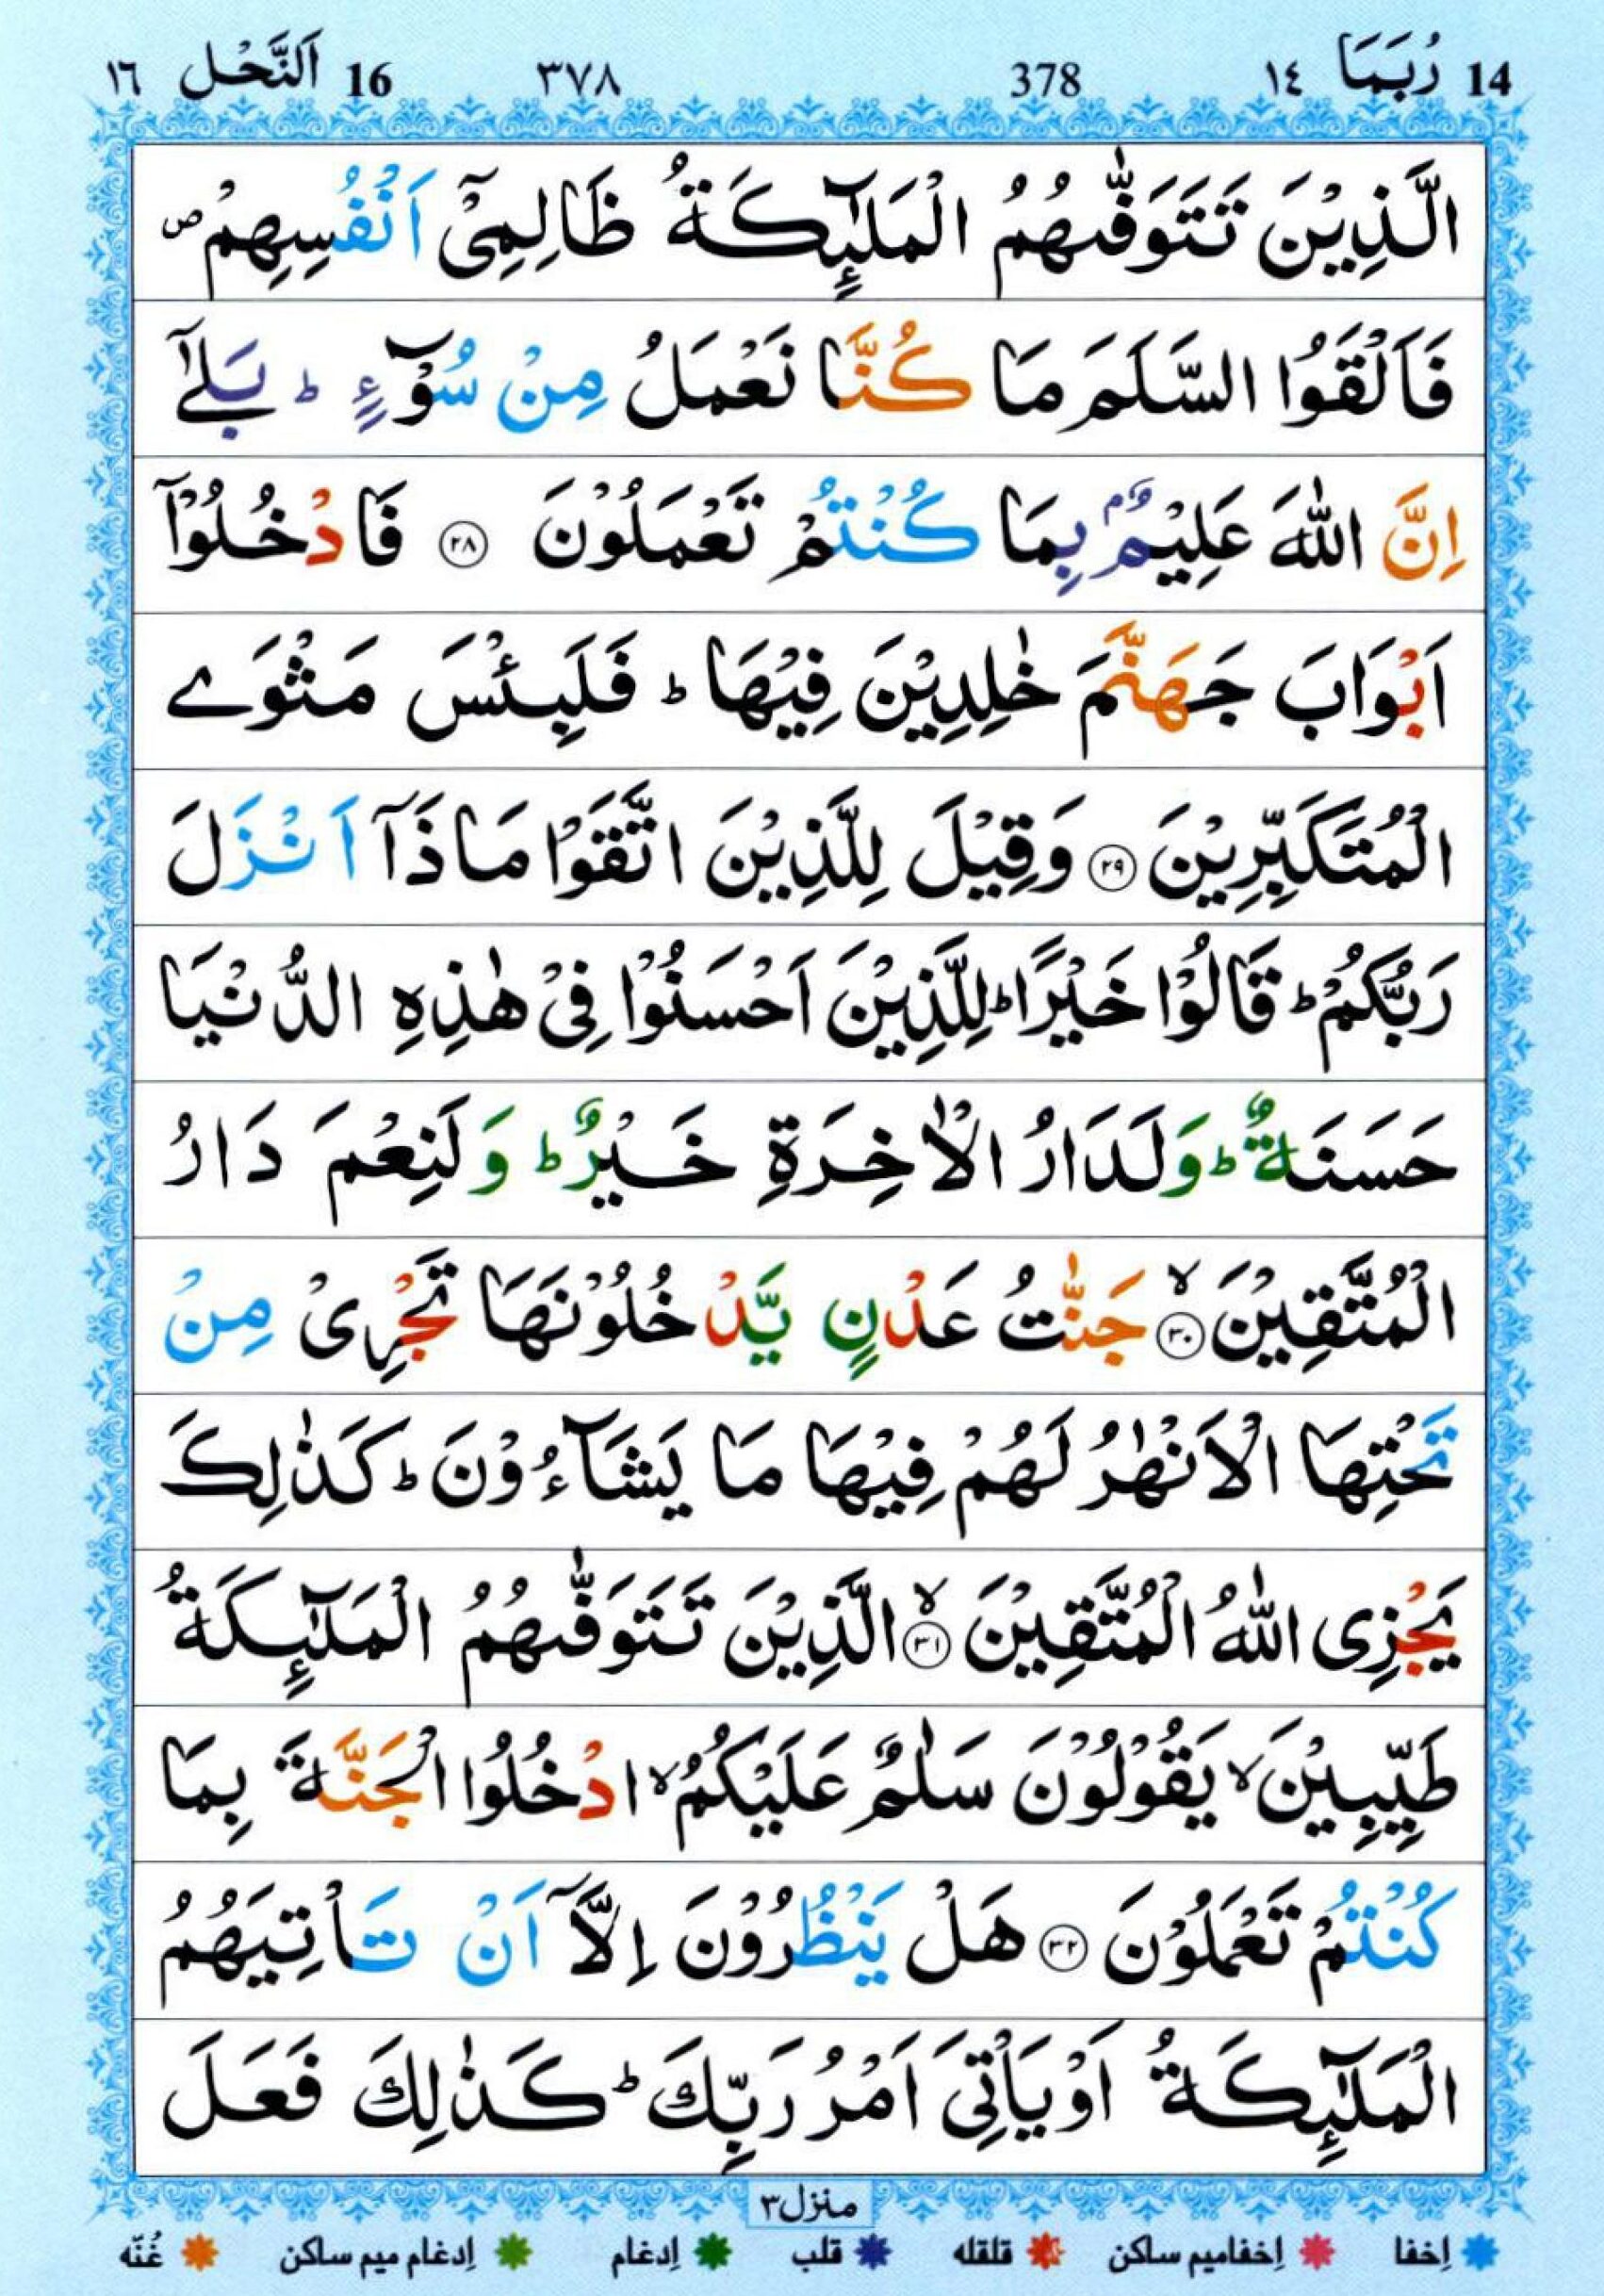 14 رُبَمَا ١٤ 378 ٣٧٨ 16 اَلنَّحْل ١٦
الَّذِيْنَ تَتَوَفّٰىهُمُ الْمَلٰٓىِٕكَةُ ظَالِمِىْٓ اَنْفُسِهِمْ ۪
فَاَلْقَوُا السَّلَمَ مَا كُنَّا نَعْمَلُ مِنْ سُوْٓءٍ ؕ بَلٰٓى
اِنَّ اللّٰهَ عَلِيْمٌۢ بِمَا كُنْتُمْ تَعْمَلُوْنَ ۝٢٨ فَادْخُلُوْٓا
اَبْوَابَ جَهَنَّمَ خٰلِدِيْنَ فِيْهَا ؕ فَلَبِئْسَ مَثْوَے
الْمُتَكَبِّرِيْنَ ۝٢٩ وَقِيْلَ لِلَّذِيْنَ اتَّقَوْا مَاذَآ اَنْزَلَ
رَبُّكُمْ ؕ قَالُوْا خَيْرًا ؕ لِلَّذِيْنَ اَحْسَنُوْا فِىْ هٰذِهِ الدُّنْيَا
حَسَنَةٌ ؕ وَلَدَارُ الْاٰخِرَةِ خَيْرٌ ؕ وَلَنِعْمَ دَارُ
الْمُتَّقِيْنَ ۝٣٠ۙ جَنّٰتُ عَدْنٍ يَّدْخُلُوْنَهَا تَجْرِىْ مِنْ
تَحْتِهَا الْاَنْهٰرُ لَهُمْ فِيْهَا مَا يَشَآءُوْنَ ؕ كَذٰلِكَ
يَجْزِى اللّٰهُ الْمُتَّقِيْنَ ۝٣١ۙ الَّذِيْنَ تَتَوَفّٰىهُمُ الْمَلٰٓىِٕكَةُ
طَيِّبِيْنَ ۙ يَقُوْلُوْنَ سَلٰمٌ عَلَيْكُمُ ۙ ادْخُلُوا الْجَنَّةَ بِمَا
كُنْتُمْ تَعْمَلُوْنَ ۝٣٢ هَلْ يَنْظُرُوْنَ اِلَّآ اَنْ تَاْتِيَهُمُ
الْمَلٰٓىِٕكَةُ اَوْ يَاْتِىَ اَمْرُ رَبِّكَ ؕ كَذٰلِكَ فَعَلَ
منزل ٣
اِخفا اِخفامیم ساکن قلقله قلب اِدغام اِدغام میم ساکن غُنّه